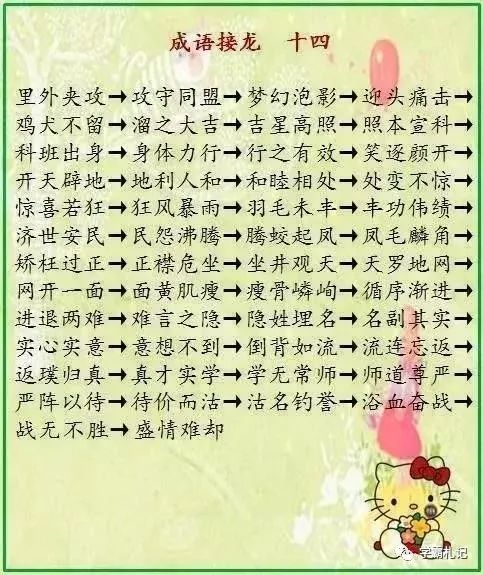 成语接龙 十四
里外夹攻→攻守同盟→梦幻泡影→迎头痛击→
鸡犬不留→溜之大吉→吉星高照→照本宣科→
科班出身→身体力行→行之有效→笑逐颜开→
开天辟地→地利人和→和睦相处→处变不惊→
惊喜若狂→狂风暴雨→羽毛未丰→丰功伟绩→
济世安民→民怨沸腾→腾蛟起凤→凤毛麟角→
矫枉过正→正襟危坐→坐井观天→天罗地网→
网开一面→面黄肌瘦→瘦骨嶙峋→循序渐进→
进退两难→难言之隐→隐姓埋名→名副其实→
实心实意→意想不到→倒背如流→流连忘返→
返璞归真→真才实学→学无常师→师道尊严→
严阵以待→待价而沽→沽名钓誉→浴血奋战→
战无不胜→盛情难却
学霸札记